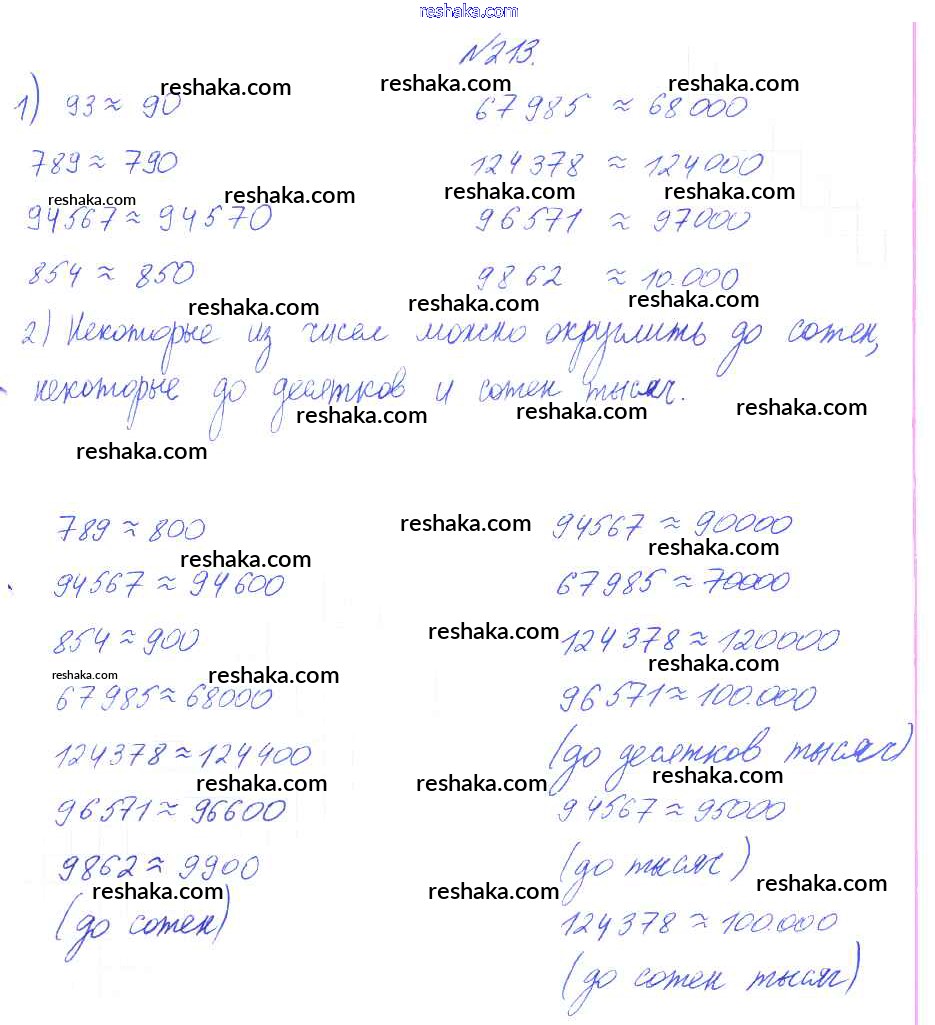 reshaka.com
№213.
1) 93 ≈ 90 67985 ≈ 68000
789 ≈ 790 124378 ≈ 124000
94567 ≈ 94570 96571 ≈ 97000
854 ≈ 850 9862 ≈ 10.000
2) Некоторые из чисел можно округлить до сотен,
некоторые до десятков и сотен тысяч.
789 ≈ 800 94567 ≈ 90000
94567 ≈ 94600 67985 ≈ 70000
854 ≈ 900 124378 ≈ 120000
67985 ≈ 68000 96571 ≈ 100.000
124378 ≈ 124400 (до десятков тысяч)
96571 ≈ 96600 94567 ≈ 95000
9862 ≈ 9900 (до тысяч)
(до сотен) 124378 ≈ 100.000
(до сотен тысяч)
reshaka.com reshaka.com reshaka.com
reshaka.com reshaka.com reshaka.com reshaka.com
reshaka.com reshaka.com reshaka.com
reshaka.com reshaka.com reshaka.com
reshaka.com
reshaka.com
reshaka.com reshaka.com
reshaka.com
reshaka.com reshaka.com reshaka.com
reshaka.com reshaka.com reshaka.com
reshaka.com reshaka.com reshaka.com